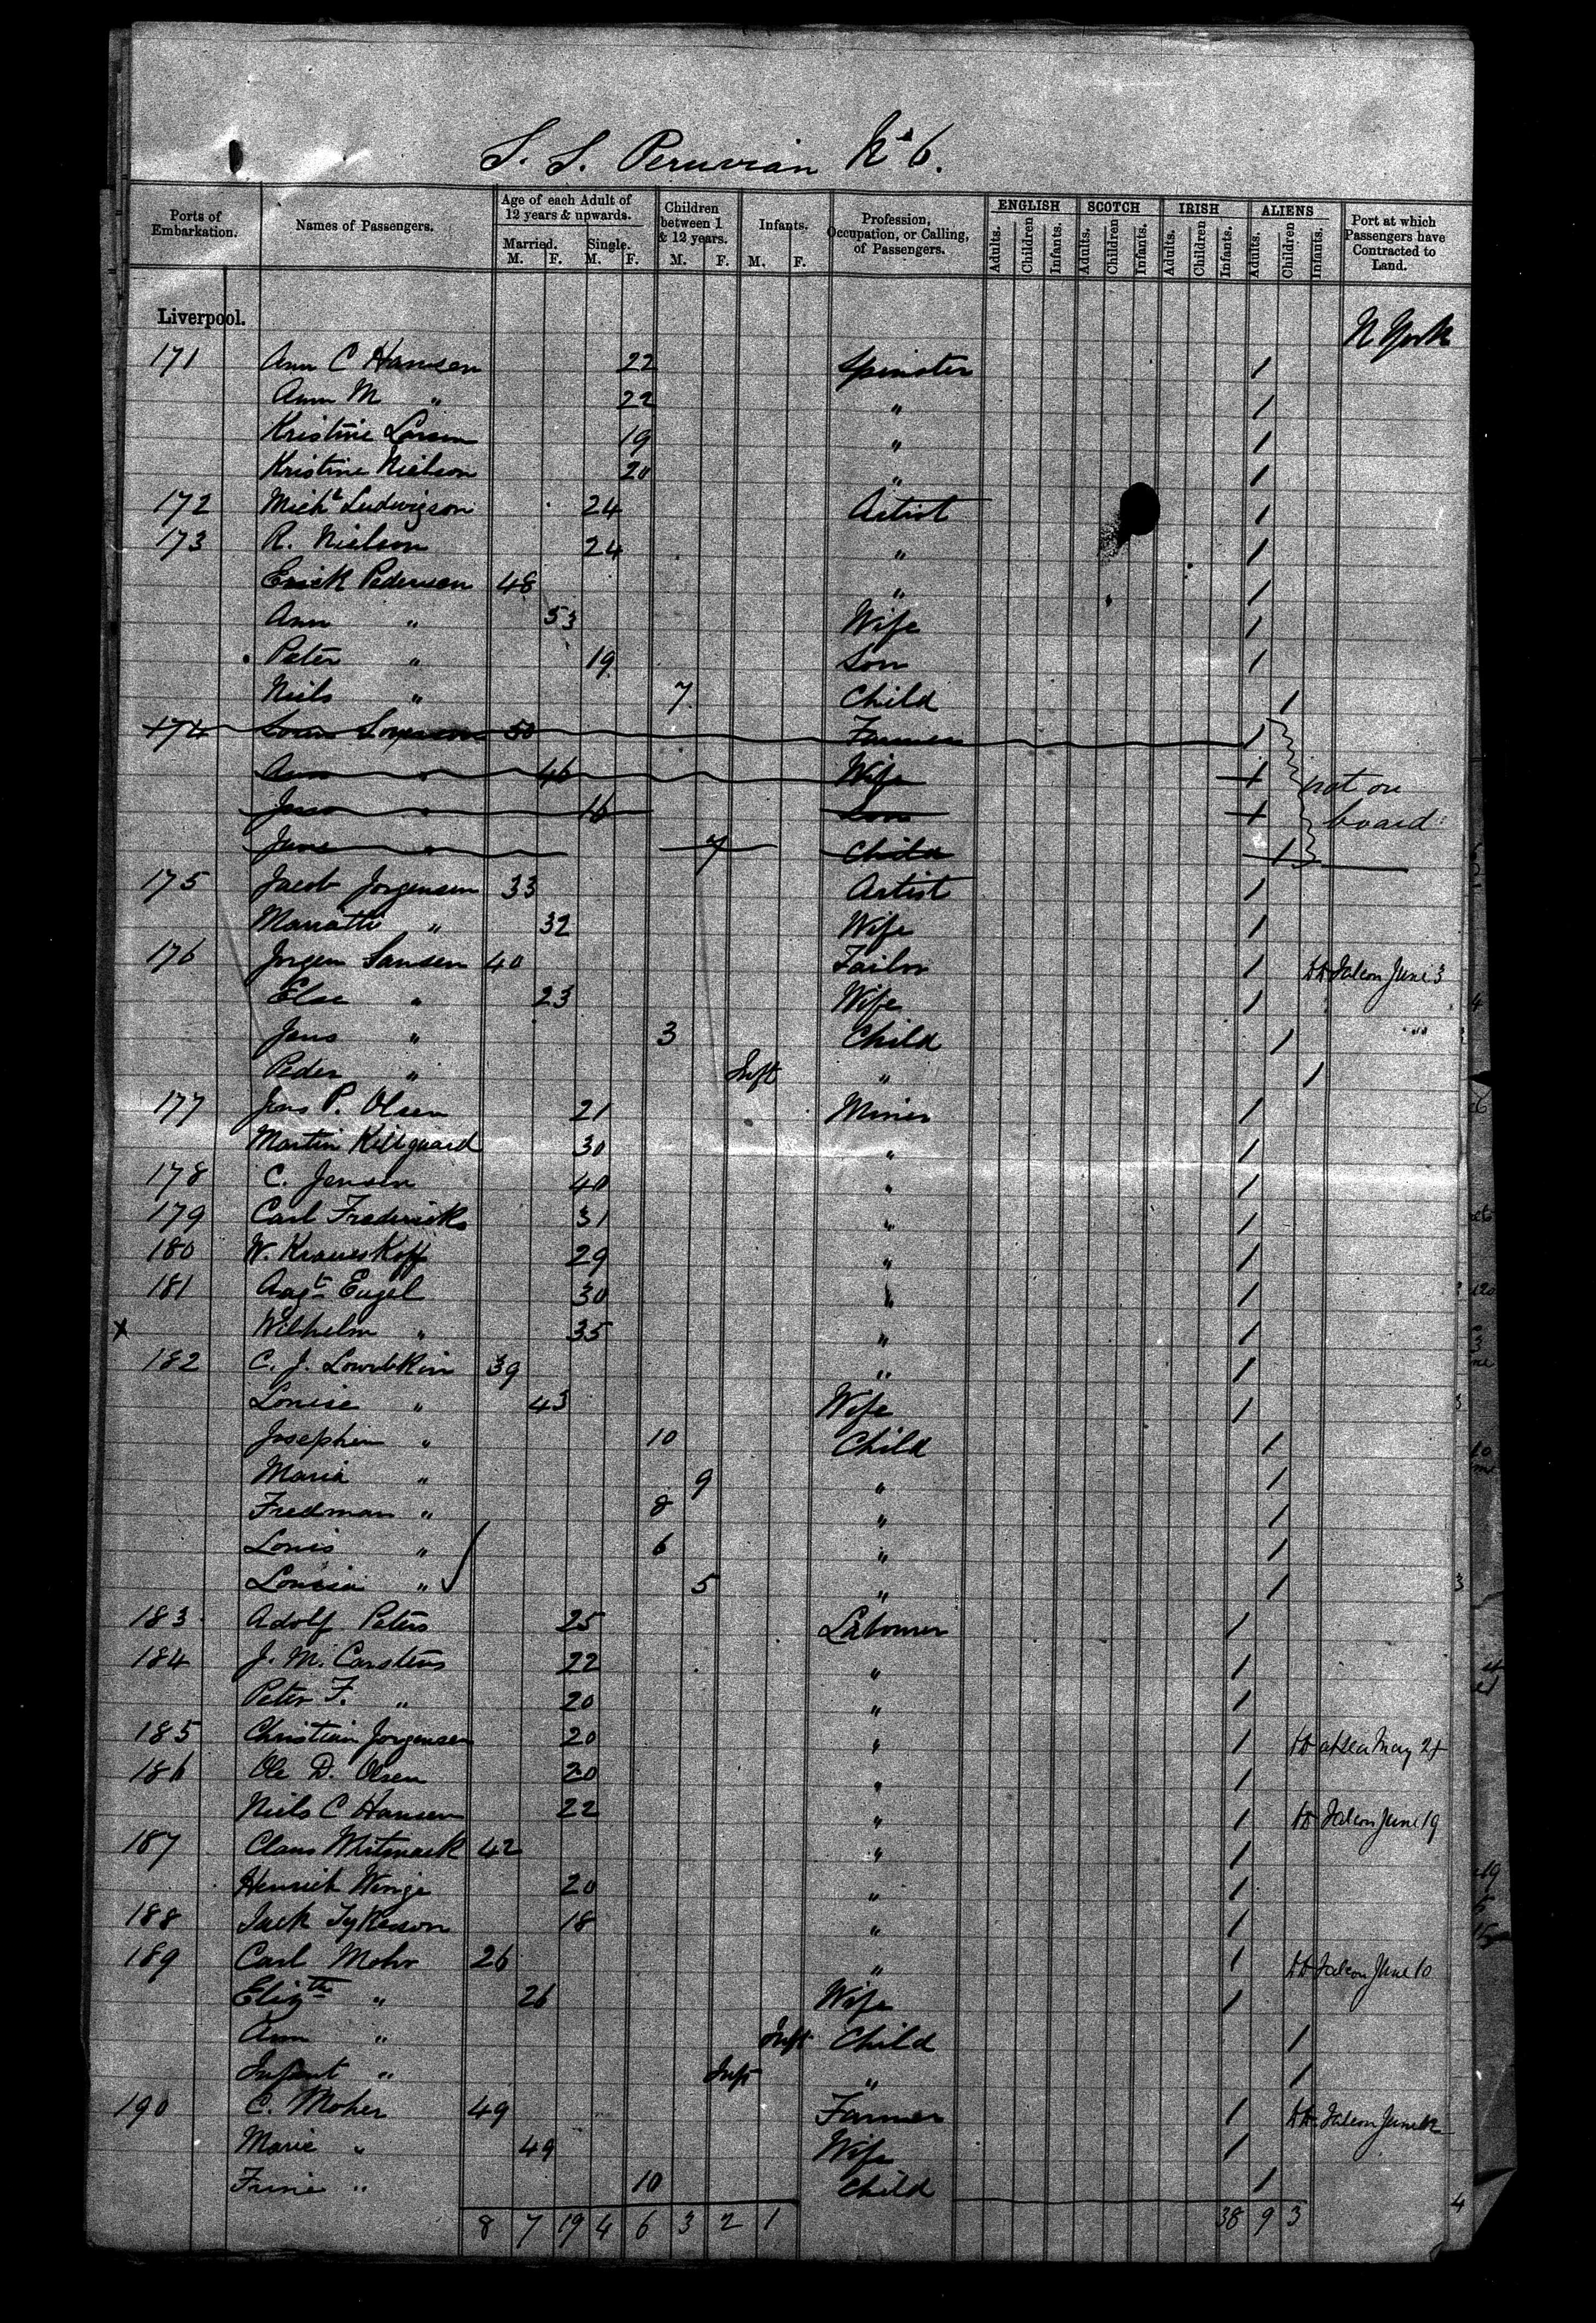 S. S. Peruvian No 6.
Ports of Embarkation. Names of Passengers. Age of each Adult of 12 years & upwards. Married. M. F. Single. M. F. Children between 1 & 12 years. M. F. Infants. M. F. Profession, Occupation, or Calling, of Passengers. ENGLISH Adults. Children Infants. SCOTCH Adults. Children Infants. IRISH Adults. Children Infants. ALIENS Adults. Children Infants. Port at which Passengers have Contracted to Land.
Liverpool. N York
171 Ann C Hansen 22 Spinster 1
Ann M " 22 " 1
Kristine Larsen 19 " 1
Kristine Nielson 20 " 1
172 Michl Ludwigson 24 Artist 1
173 R. Nielson 24 " 1
Erick Pedersen 48 " 1
Ann " 53 Wife 1
Peter " 19 Son 1
Niels " 7 Child 1
174 50 Farmer 1
Ann " 46 Wife 1 not on
" 16 Son 1 board
Jens " 7 Child 1
175 Jacob Jorgensen 33 Artist 1
" 32 Wife 1
176 Jorgen Sansen 40 Tailor 1 June 3
Else " 23 Wife 1
Jens " 3 Child 1 "
Peder " Inft " 1
177 Jens P. Olsen 21 Miner 1
Martin Killguard 30 " 1
178 C. Jensen 40 " 1
179 Carl Fredericks 31 " 1
180 W. Kraueskoff 29 " 1
181 Augt Engel 30 " 1
x Wilhelm " 35 " 1
182 C. J. 39 " 1
Louise " 43 Wife 1
Josephin " 10 Child 1
Maria " 9 " 1
Fredman " 8 " 1
Louis " 6 " 1
Louisa " 5 " 1
183 Adolf Peters 25 Labourer 1
184 J. M. Carstens 22 " 1
Peter F. " 20 " 1
185 Christian Jorgensen 20 " 1 at sea May 21
186 Ole D. Olsen 20 " 1
Niels C Hansen 22 " 1 June 19
187 Claus Mitmack 42 " 1
Henrich Winge 20 " 1
188 Tykesson 18 " 1
189 Carl Mohr 26 " 1 June 10
Elizth " 26 Wife 1
Ann " Inft Child 1
Infant " Inft " 1
190 C. Moher 49 Farmer 1 June 12
Marie " 49 Wife 1
Trine " 10 Child 1
8 7 19 4 6 3 2 1 38 9 3